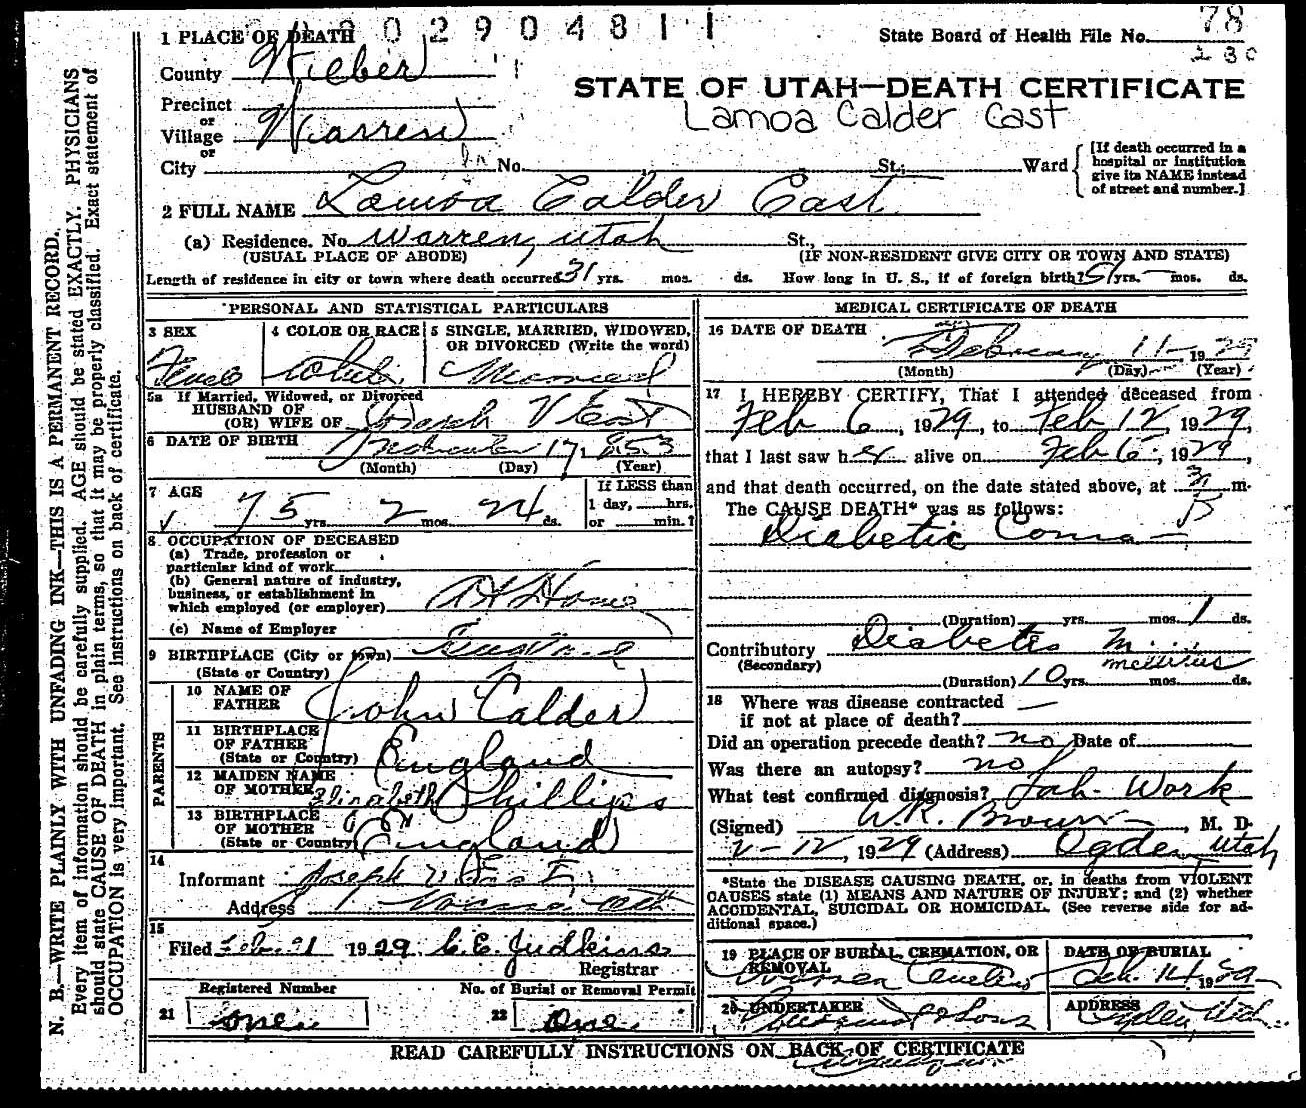 0 2 9 0 4 8 1 1
1 PLACE OF DEATH
State Board of Health File No. 78
230
County Weber
STATE OF UTAH—DEATH CERTIFICATE
Precinct
or
Village Warren
Lamoa Calder East
or
City No. St.; Ward
[If death occurred in a
hospital or institution
give its NAME instead
of street and number.]
2 FULL NAME Lamoa Calder East
(a) Residence. No. Warren, Utah St.,
(USUAL PLACE OF ABODE) (IF NON-RESIDENT GIVE CITY OR TOWN AND STATE)
Length of residence in city or town where death occurred 31 yrs. mos. ds. How long in U. S., if of foreign birth? 51 yrs. — mos. ds.
PERSONAL AND STATISTICAL PARTICULARS
3 SEX
4 COLOR OR RACE
5 SINGLE, MARRIED, WIDOWED,
OR DIVORCED (Write the word)
Female White Married
5a If Married, Widowed, or Divorced
HUSBAND OF
(OR) WIFE OF V East
6 DATE OF BIRTH November 17, 1853
(Month) (Day) (Year)
7 AGE
If LESS than
1 day, hrs.
or min.?
75 yrs. 2 mos. 24 ds.
8 OCCUPATION OF DECEASED
(a) Trade, profession or
particular kind of work
(b) General nature of industry,
business, or establishment in
which employed (or employer) At Home
(c) Name of Employer
9 BIRTHPLACE (City or town) England
(State or Country)
PARENTS
10 NAME OF
FATHER John Calder
11 BIRTHPLACE
OF FATHER
(State or Country) England
12 MAIDEN NAME
OF MOTHER Elizabeth Phillips
13 BIRTHPLACE
OF MOTHER
(State or Country) England
14
Informant Joseph V East
Address
15
Filed Feb. 1929 C. E. Judkins
Registrar
Registered Number No. of Burial or Removal Permit
21 one 22 one
MEDICAL CERTIFICATE OF DEATH
16 DATE OF DEATH
February 11 — 1929
(Month) (Day) (Year)
17 I HEREBY CERTIFY, That I attended deceased from
Feb 6, 1929, to Feb 12, 1929,
that I last saw her alive on Feb 6, 1929,
and that death occurred, on the date stated above, at 3 m.
The CAUSE DEATH* was as follows:
Diabetic Coma —
(Duration) yrs. mos. 1 ds.
Contributory Diabetes M
(Secondary) mellitus
(Duration) 10 yrs. mos. ds.
18 Where was disease contracted —
if not at place of death?
Did an operation precede death? no Date of
Was there an autopsy? no
What test confirmed diagnosis? Lab. Work
(Signed) W.R. Brown, M. D.
2-12, 1929 (Address) Ogden Utah
*State the DISEASE CAUSING DEATH, or, in deaths from VIOLENT
CAUSES state (1) MEANS AND NATURE OF INJURY; and (2) whether
ACCIDENTAL, SUICIDAL OR HOMICIDAL. (See reverse side for ad-
ditional space.)
19 PLACE OF BURIAL, CREMATION, OR
REMOVAL
DATE OF BURIAL
Warren Feb. 14 1929
20 UNDERTAKER
ADDRESS
& Sons Ogden, Utah
READ CAREFULLY INSTRUCTIONS ON BACK OF CERTIFICATE
N. B.—WRITE PLAINLY WITH UNFADING INK—THIS IS A PERMANENT RECORD.
Every item of information should be carefully supplied. AGE should be stated EXACTLY. PHYSICIANS
should state CAUSE OF DEATH in plain terms, so that it may be properly classified. Exact statement of
OCCUPATION is very important. See instructions on back of certificate.